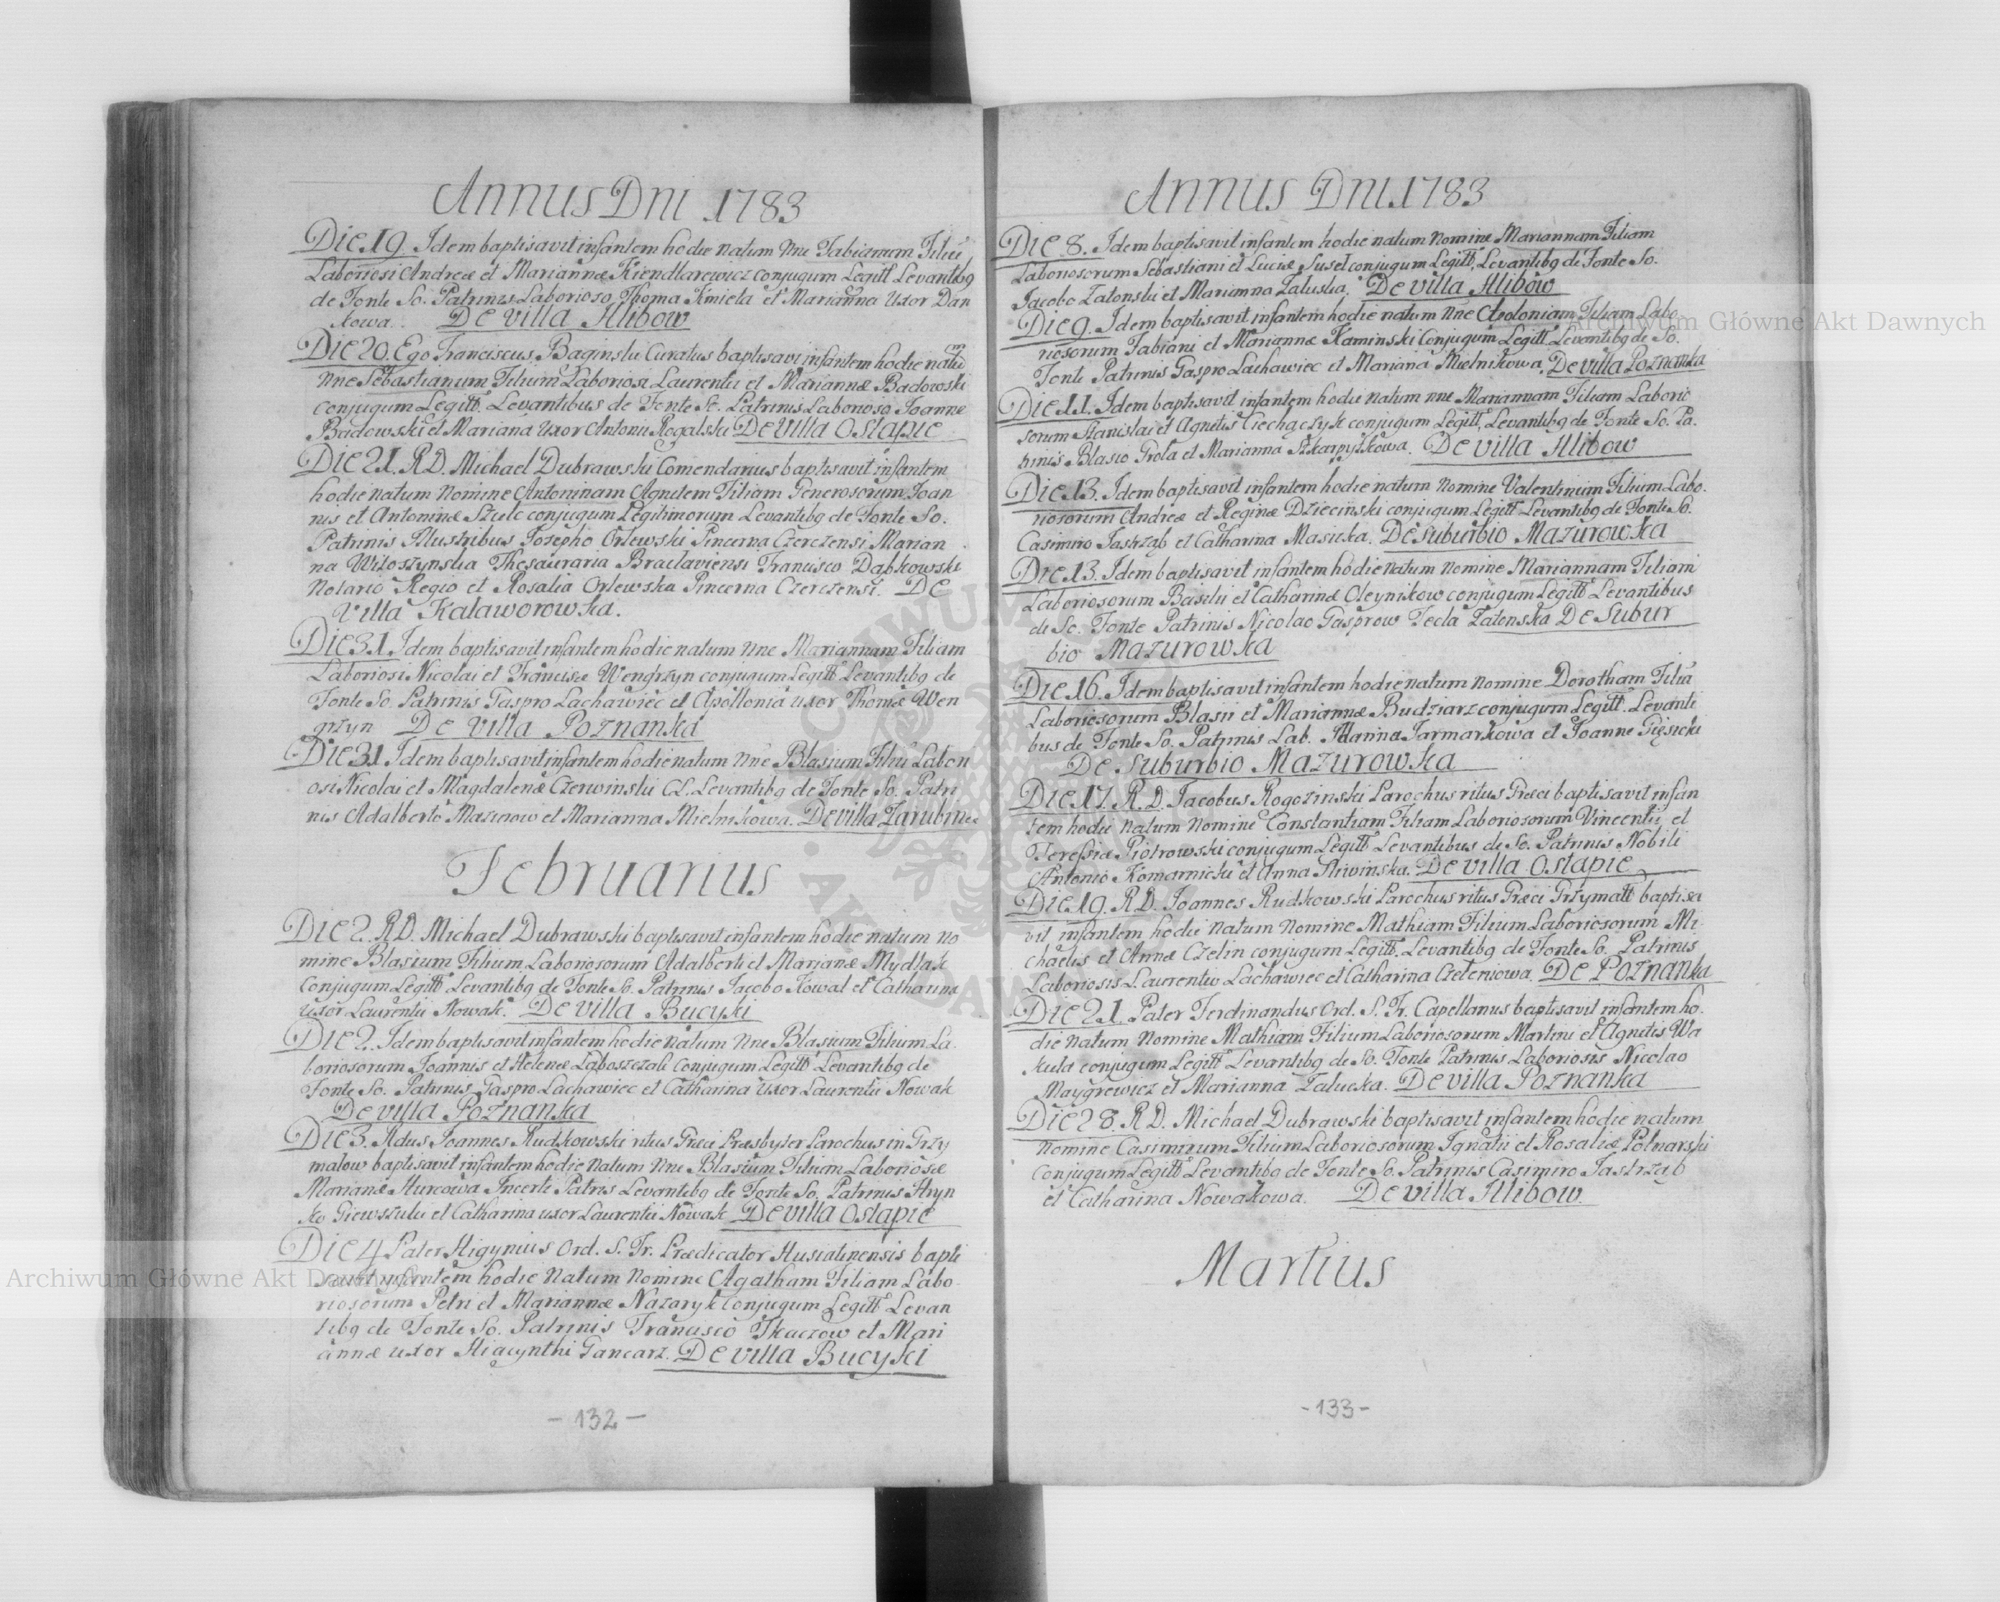 Annus Dni 1783
Die 19. Idem baptisavit infantem hodie natum Nne Fabianum Filiū
Laboriosi Andreæ et Mariannæ Kiendlarewicz conjugum Legitt Levantibq
de Fonte So. Patrinis Laborioso Thoma Kmieta et Marianna Uxor Dan
kowa. De villa Hlibow
Die 20. Ego Franciscus Baginski Curatus baptisavi infantem hodie natū
Nne Sebastianum Filium Laboriosi Laurentii et Mariannæ Badowski
conjugum Legitt. Levantibus de Fonte St. Patrinis Laborioso Joanne
Badowski et Mariana uxor Antonii Rogalski De villa Ostapie
Die 21. R.D. Michael Dubrawski Comendarius baptisavit infantem
hodie natum Nomine Antoninam Agnetem Filiam Generosorum Joan
nis et Antoninæ Szulc conjugum Legitimorum Levantibq de Fonte So.
Patrinis Illustribus Josepho Orlewski Pincerna Czerczensi Marian
na Wiloszynska Thesauraria Braclaviensi Francisco Dąbkowski
Notario Regio et Rosalia Orlewska Pincerna Czerczensi. De
Villa Kalaworowka.
Die 31. Idem baptisavit infantem hodie natum Nne Mariannam Filiam
Laboriosi Nicolai et Franciscæ Wengrzyn conjugum Legitt Levantibq de
Fonte So. Patrinis Gaspro Lachawiec et Apollonia uxor Thomæ Wen
grzyn De villa Poznanka
Die 31. Idem baptisavit infantem hodie natum Nne Blasium Filiū Labori
osi Nicolai et Magdalenæ Czerwinski CL. Levantibq de Fonte So. Patri
nis Adalberto Mazurow et Marianna Mielnikowa. De villa Zarubince
Februarius
Die 2. R.D. Michael Dubrawski baptisavit infantem hodie natum No
mine Blasium Filium Laboriosorum Adalberti et Marianæ Mydlak
Conjugum Legitt Levantibq de Fonte So. Patrinis Jacobo Kowal et Catharina
uxor Laurentii Nowak. De villa Bucyki
Die 2. Idem baptisavit infantem hodie natum Nne Blasium Filium La-
boriosorum Joannis et Helenæ Laboszczak Conjugum Legitt Levantibq de
Fonte So. Patrinis Gaspro Lachawiec et Catharina uxor Laurentii Nowak
De villa Poznanka
Die 3. Rdus Joannes Rudkowski ritus Græci Præsbyter Parochus in Grzy
malow baptisavit infantem hodie natum Nne Blasium Filium Laboriosæ
Marianæ Hurcowa Incerti Patris Levantibq de Fonte So. Patrinis Hryn
ko et Catharina uxor Laurentii Nowak De villa Ostapie
Die 4 Pater Higynius Ord. S. Fr. Prædicator Husiatinensis bapti
savit infantem hodie natum Nomine Agatham Filiam Labo-
riosorum Petri et Mariannæ Nazaryk Conjugum Legitt Levan
tibq de Fonte So. Patrinis Francisco Tkaczow et Mari
annæ uxor Hiacynthi Gancarz. De villa Bucyki
- 132 -
Annus Dni 1783
Die 8. Idem baptisavit infantem hodie natum Nomine Mariannam Filiam
Laboriosorum Sebastiani et Luciæ Susel conjugum Legitt, Levantibq de Fonte So.
Jacobo Zatonski et Marianna Zaluska. De villa Hlibow
Die 9. Idem baptisavit infantem hodie natum Nne Apoloniam Filiam Labo-
riosorum Fabiani et Mariannæ Kaminski Conjugum Legitt Levantibq de So.
Fonte Patrinis Gaspro Lachawiec et Mariana Mielnikowa. De villa Poznanka
Die 11. Idem baptisavit infantem hodie natum Nne Mariannam Filiam Laborio
sorum Stanislai et Agnetis conjugum Legitt, Levantibq de Fonte So. Pa-
trinis Blasio Grola et Marianna Szkarpytkowa. De villa Hlibow
Die 13. Idem baptisavit infantem hodie natum Nomine Valentinum Filium Labo-
riosorum Andreæ et Reginæ Dziecinski conjugum Legitt Levantibq de Fonte So.
Casimiro Jastrząb et Catharina Masicka. De Suburbio Mazurowka
Die 13. Idem baptisavit infantem hodie natum Nomine Mariannam Filiam
Laboriosorum Basilii et Catharinæ Oleynikow conjugum Legitt Levantibus
de So. Fonte Patrinis Nicolao Gasprow Tecla Zatonska De Subur
bio Mazurowka
Die 16. Idem baptisavit infantem hodie natum Nomine Dorotham Filiā
Laboriosorum Blasii et Mariannæ Budziarz conjugum Legitt. Levanti
bus de Fonte So. Patrinis Lab. Marina Jarmarkowa et Joanne Gięsicki
De Suburbio Mazurowka
Die 17. R.D. Jacobus Rogozinski Parochus ritus Græci baptisavit infan
tem hodie natum Nomine Constantiam Filiam Laboriosorum Vincentii et
Teressiæ Piotrowski conjugum Legitt Levantibus de So. Patrinis Nobili
Antonio Komarnicki et Anna Sliwinska. De villa Ostapie
Die 19. R.D. Joannes Rudkowski Parochus ritus Græci Grzymałł baptisa
vit infantem hodie natum Nomine Mathiam Filium Laboriosorum Mi-
chaelis et Annæ Czelin conjugum Legitt. Levantibq de Fonte So. Patrinis
Laboriosis Laurentio Lachawiec et Catharina Czeleniowa. De Poznanka
Die 21. Pater Ferdinandus Ord. S. Fr. Capellanus baptisavit infantem ho-
die natum Nomine Mathiam Filium Laboriosorum Martini et Agnetis Wa
kula conjugum Legitt Levantibq de So. Fonte Patrinis Laboriosis Nicolao
Maygrewicz et Marianna Zalucka. De villa Poznanka
Die 28. R.D. Michael Dubrawski baptisavit infantem hodie natum
Nomine Casimirum Filium Laboriosorum Ignatii et Rosaliæ Polnarski
Conjugum Legitt Levantibq de Fonte So. Patrinis Casimiro Jastrząb
et Catharina Nowakowa. De villa Hlibow.
Martius
- 133 -
Archiwum Główne Akt Dawnych
Archiwum Główne Akt Dawnych